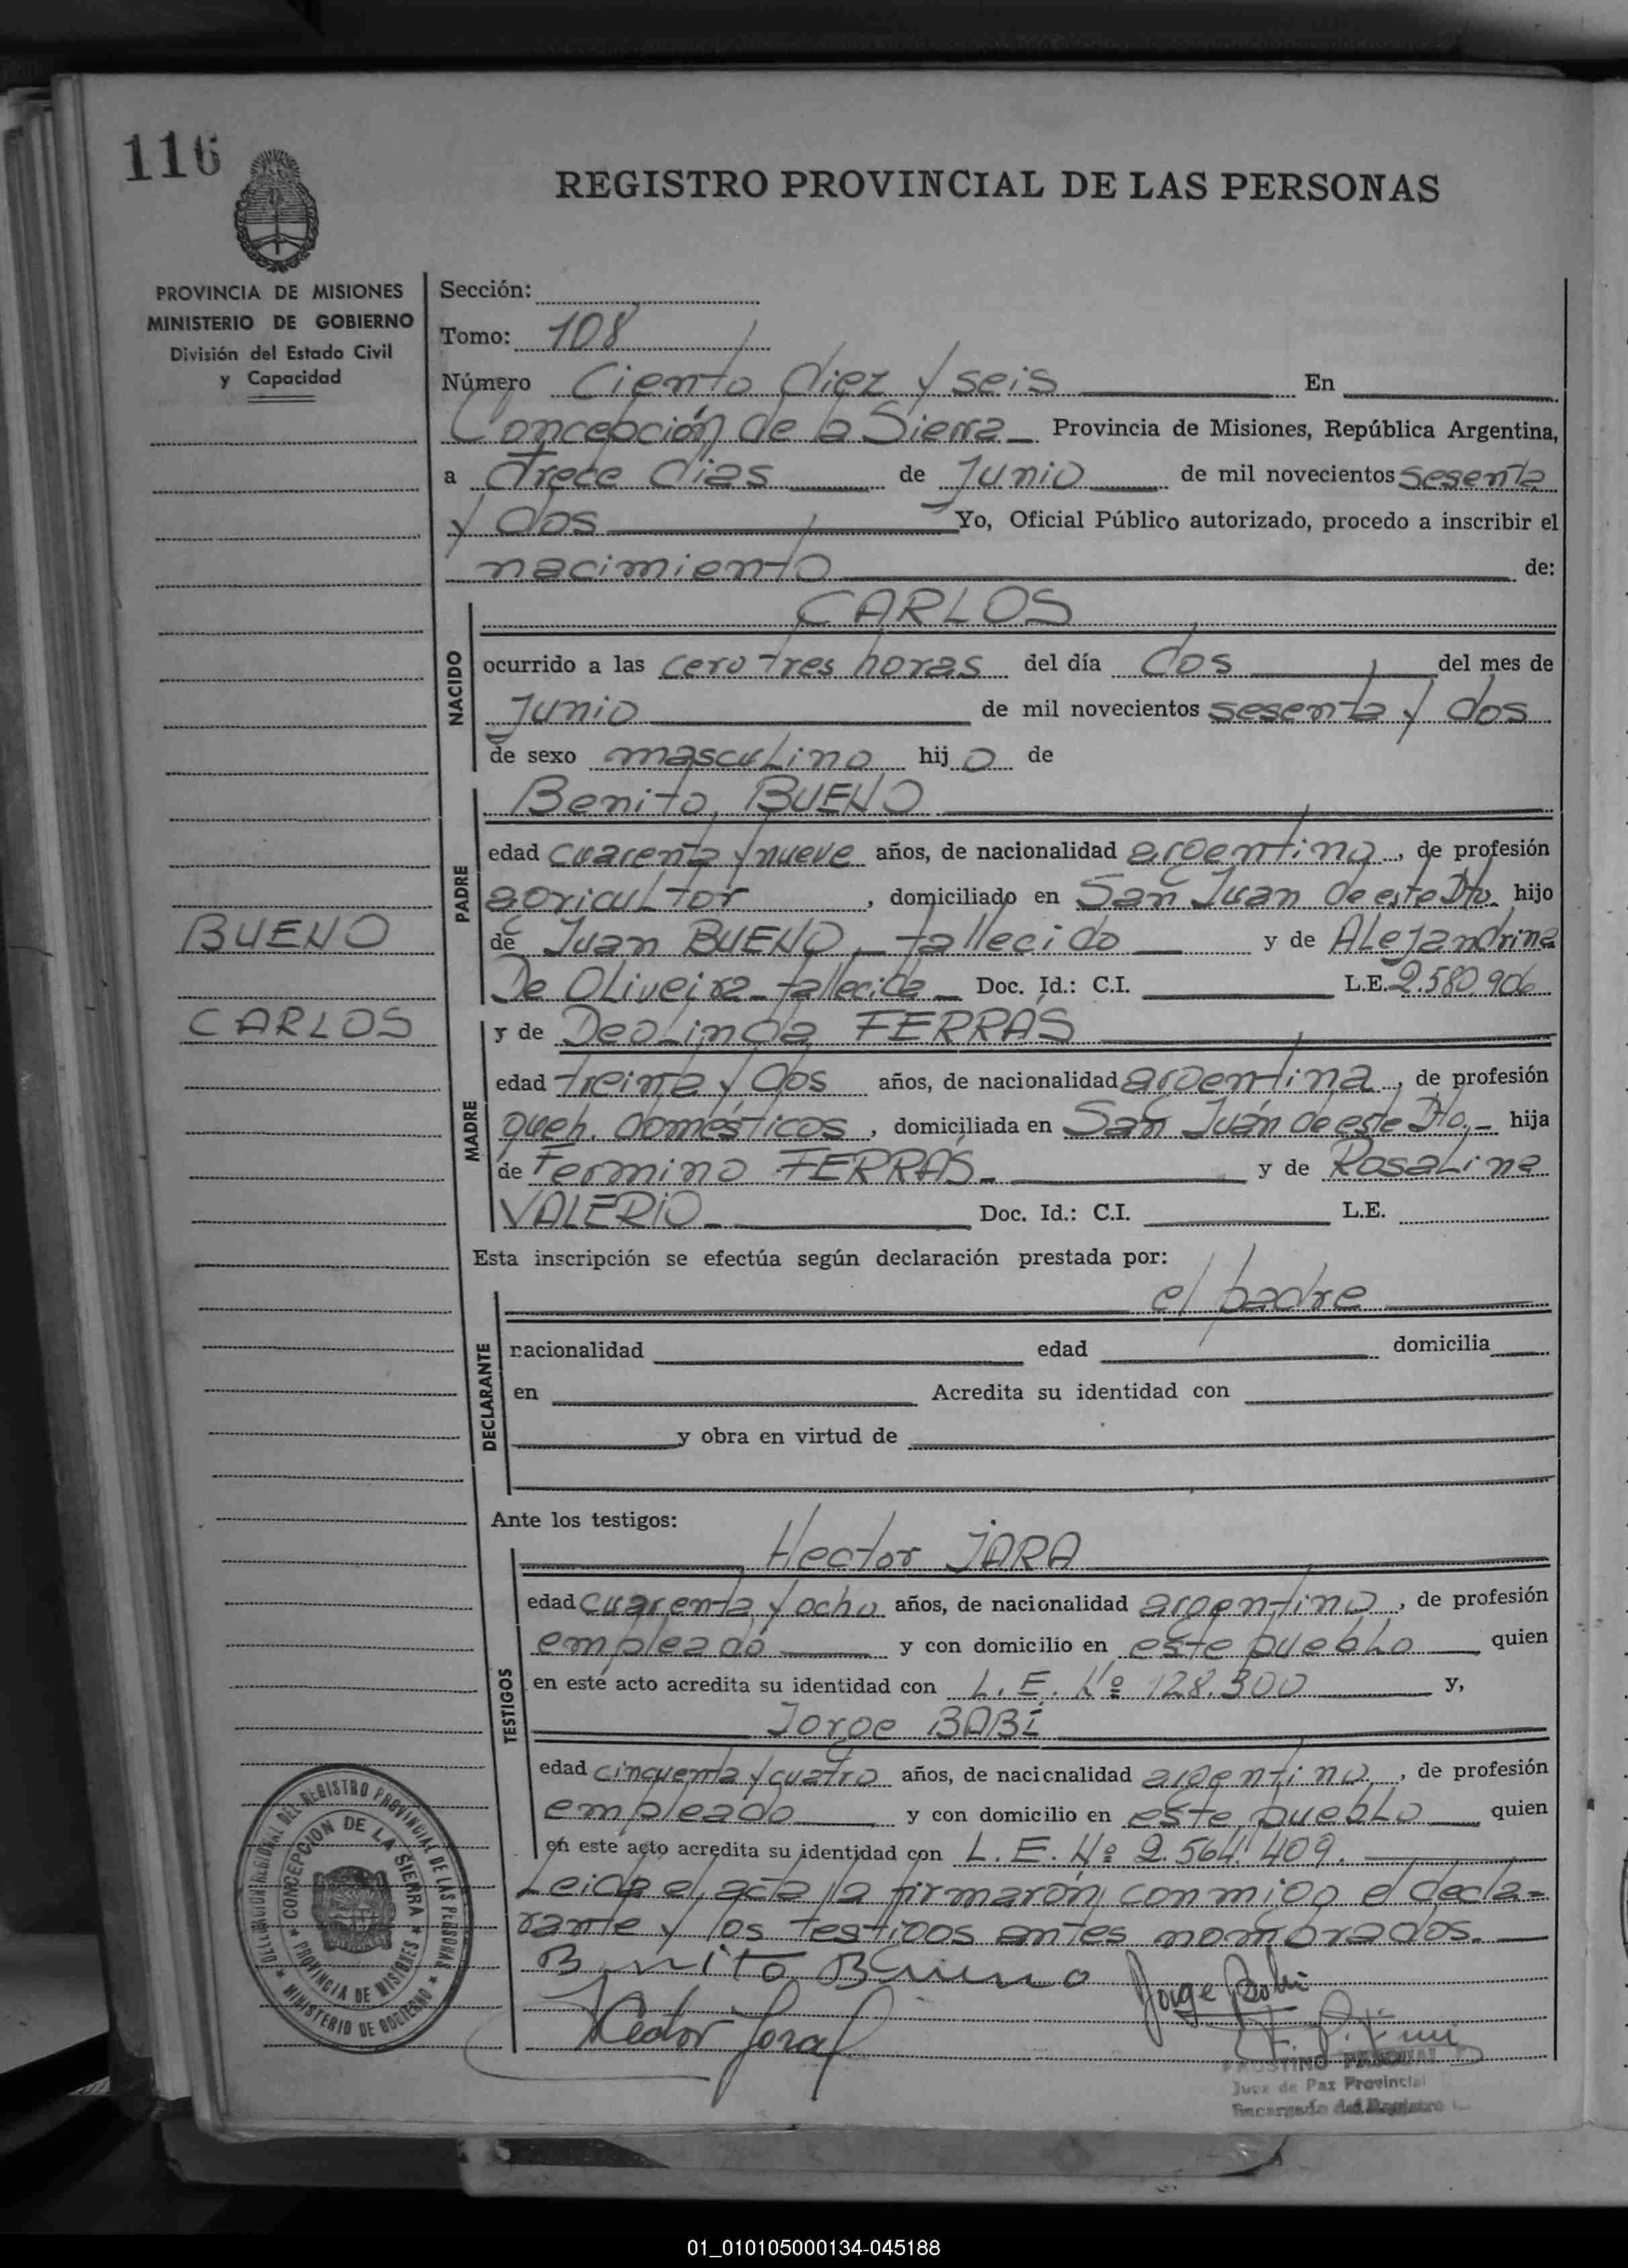 116
REGISTRO PROVINCIAL DE LAS PERSONAS
PROVINCIA DE MISIONES
MINISTERIO DE GOBIERNO
División del Estado Civil
y Capacidad
Sección:
Tomo: 108
Número Ciento diez y seis En
Concepción de la Sierra Provincia de Misiones, República Argentina,
a trece dias de Junio de mil novecientos sesenta
y dos Yo, Oficial Público autorizado, procedo a inscribir el
nacimiento de:
CARLOS
NACIDO
ocurrido a las cero tres horas del día dos del mes de
Junio de mil novecientos sesenta y dos
de sexo masculino hijo de
PADRE
Benito BUENO
edad cuarenta y nueve años, de nacionalidad argentino, de profesión
agricultor, domiciliado en San Juan de este Dto. hijo
de Juan BUENO - fallecido y de Alejandrina
De Oliveira - fallecida Doc. Id.: C.I. L.E. 2.580.906
BUENO
CARLOS
MADRE
y de Deolinda FERRÁS
edad treinta y dos años, de nacionalidad argentina, de profesión
queh. domésticos, domiciliada en San Juán de este Dto. - hija
de Fermino FERRÁS - y de Rosalina
VALERIO - Doc. Id.: C.I. L.E.
Esta inscripción se efectúa según declaración prestada por:
DECLARANTE
el padre
nacionalidad edad domicilia
en Acredita su identidad con
y obra en virtud de
Ante los testigos:
TESTIGOS
Hector JARA
edad cuarenta y ocho años, de nacionalidad argentino, de profesión
empleado y con domicilio en este pueblo quien
en este acto acredita su identidad con L. E. Nº 128.300 y,
Jorge BABÍ
edad cincuenta y cuatro años, de nacionalidad argentino, de profesión
empleado y con domicilio en este pueblo quien
en este acto acredita su identidad con L. E. Nº 2.564.409.
Leida el acta la firmarón conmigo el decla-
rante y los testigos antes nombrados.
Benito Bueno
Jorge Babi
Hector Jara
FAUSTINO PASCUAL
Juez de Paz Provincial
Encargado del Registro
DELEGACION REGIONAL DEL REGISTRO PROVINCIAL DE LAS PERSONAS
MINISTERIO DE GOBIERNO
CONCEPCION DE LA SIERRA
PROVINCIA DE MISIONES
01_010105000134-045188